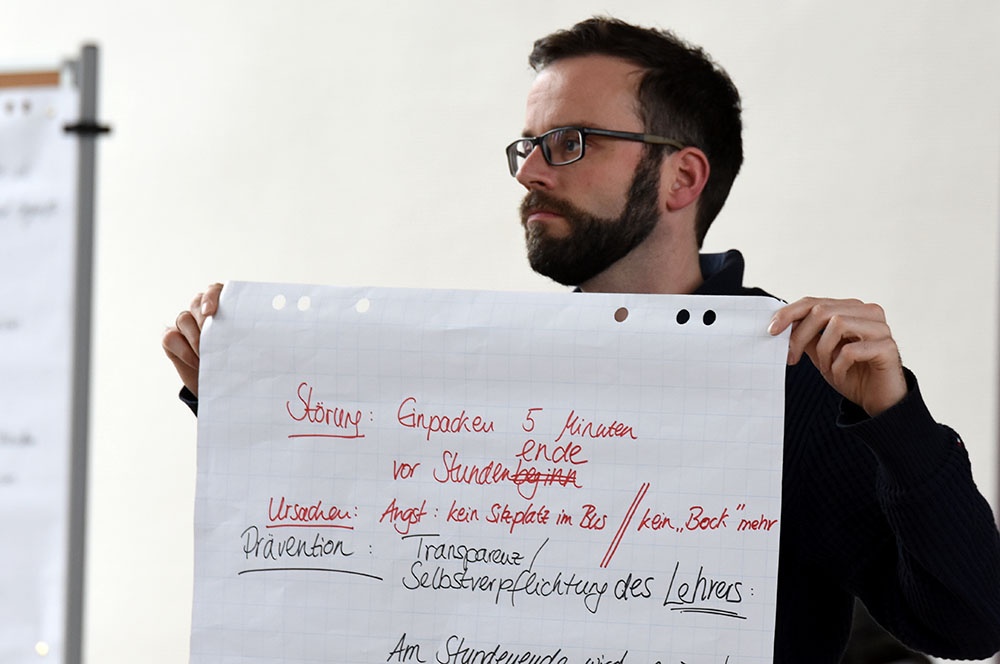 Störung: Einpacken 5 Minuten
ende
vor Stundenbeginn
Ursachen: Angst: kein Sitzplatz im Bus // kein „Bock" mehr
Prävention: Transparenz/
Selbstverpflichtung des Lehrers:
Am Stundenende wird